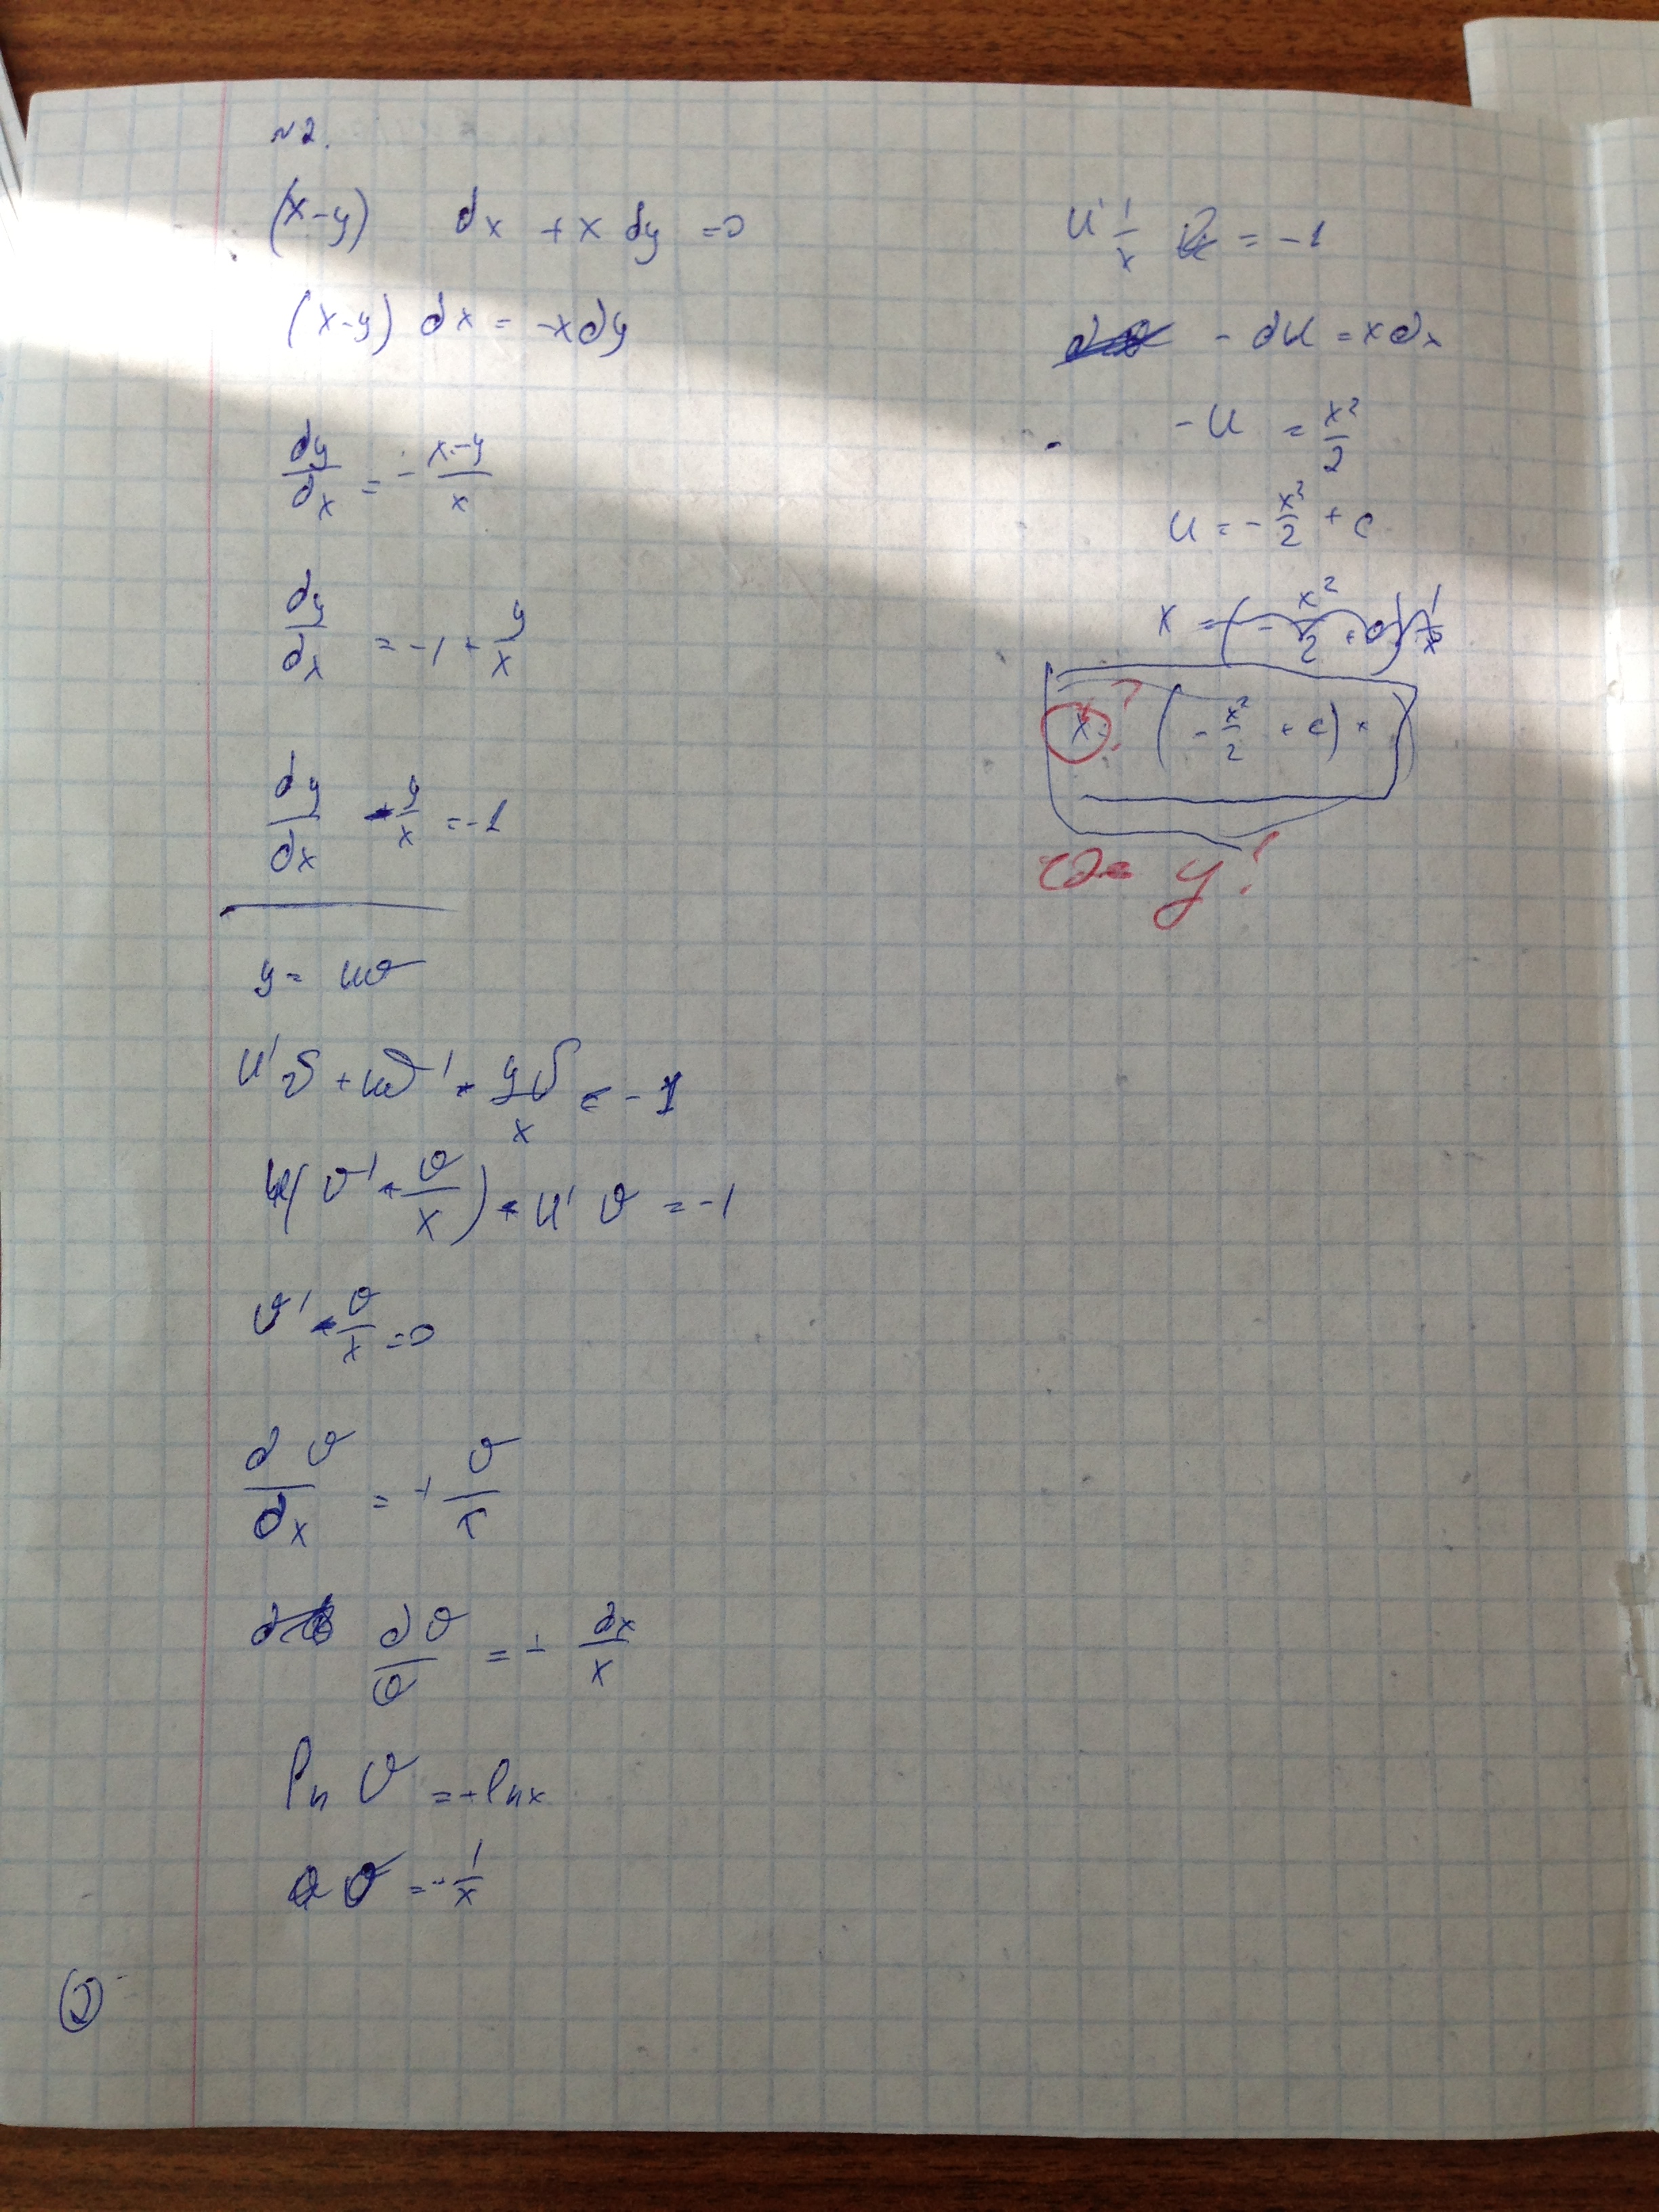 №2.
(x-y) dx + x dy = 0
(x-y) dx = -x dy
dy/dx = - (x-y)/x
dy/dx = -1 + y/x
dy/dx - y/x = -1
y = uv
u'v + uv' - uv/x = -1
u(v' - v/x) + u'v = -1
v' - v/x = 0
dv/dx = + v/x
dv/v = + dx/x
ln v = + ln x
v = - 1/x
②
u' 1/x = -1
- du = x dx
-u = x²/2
u = - x²/2 + c
x = (- x²/2 + c) 1/x
x = (- x²/2 + c) x
?
где y!